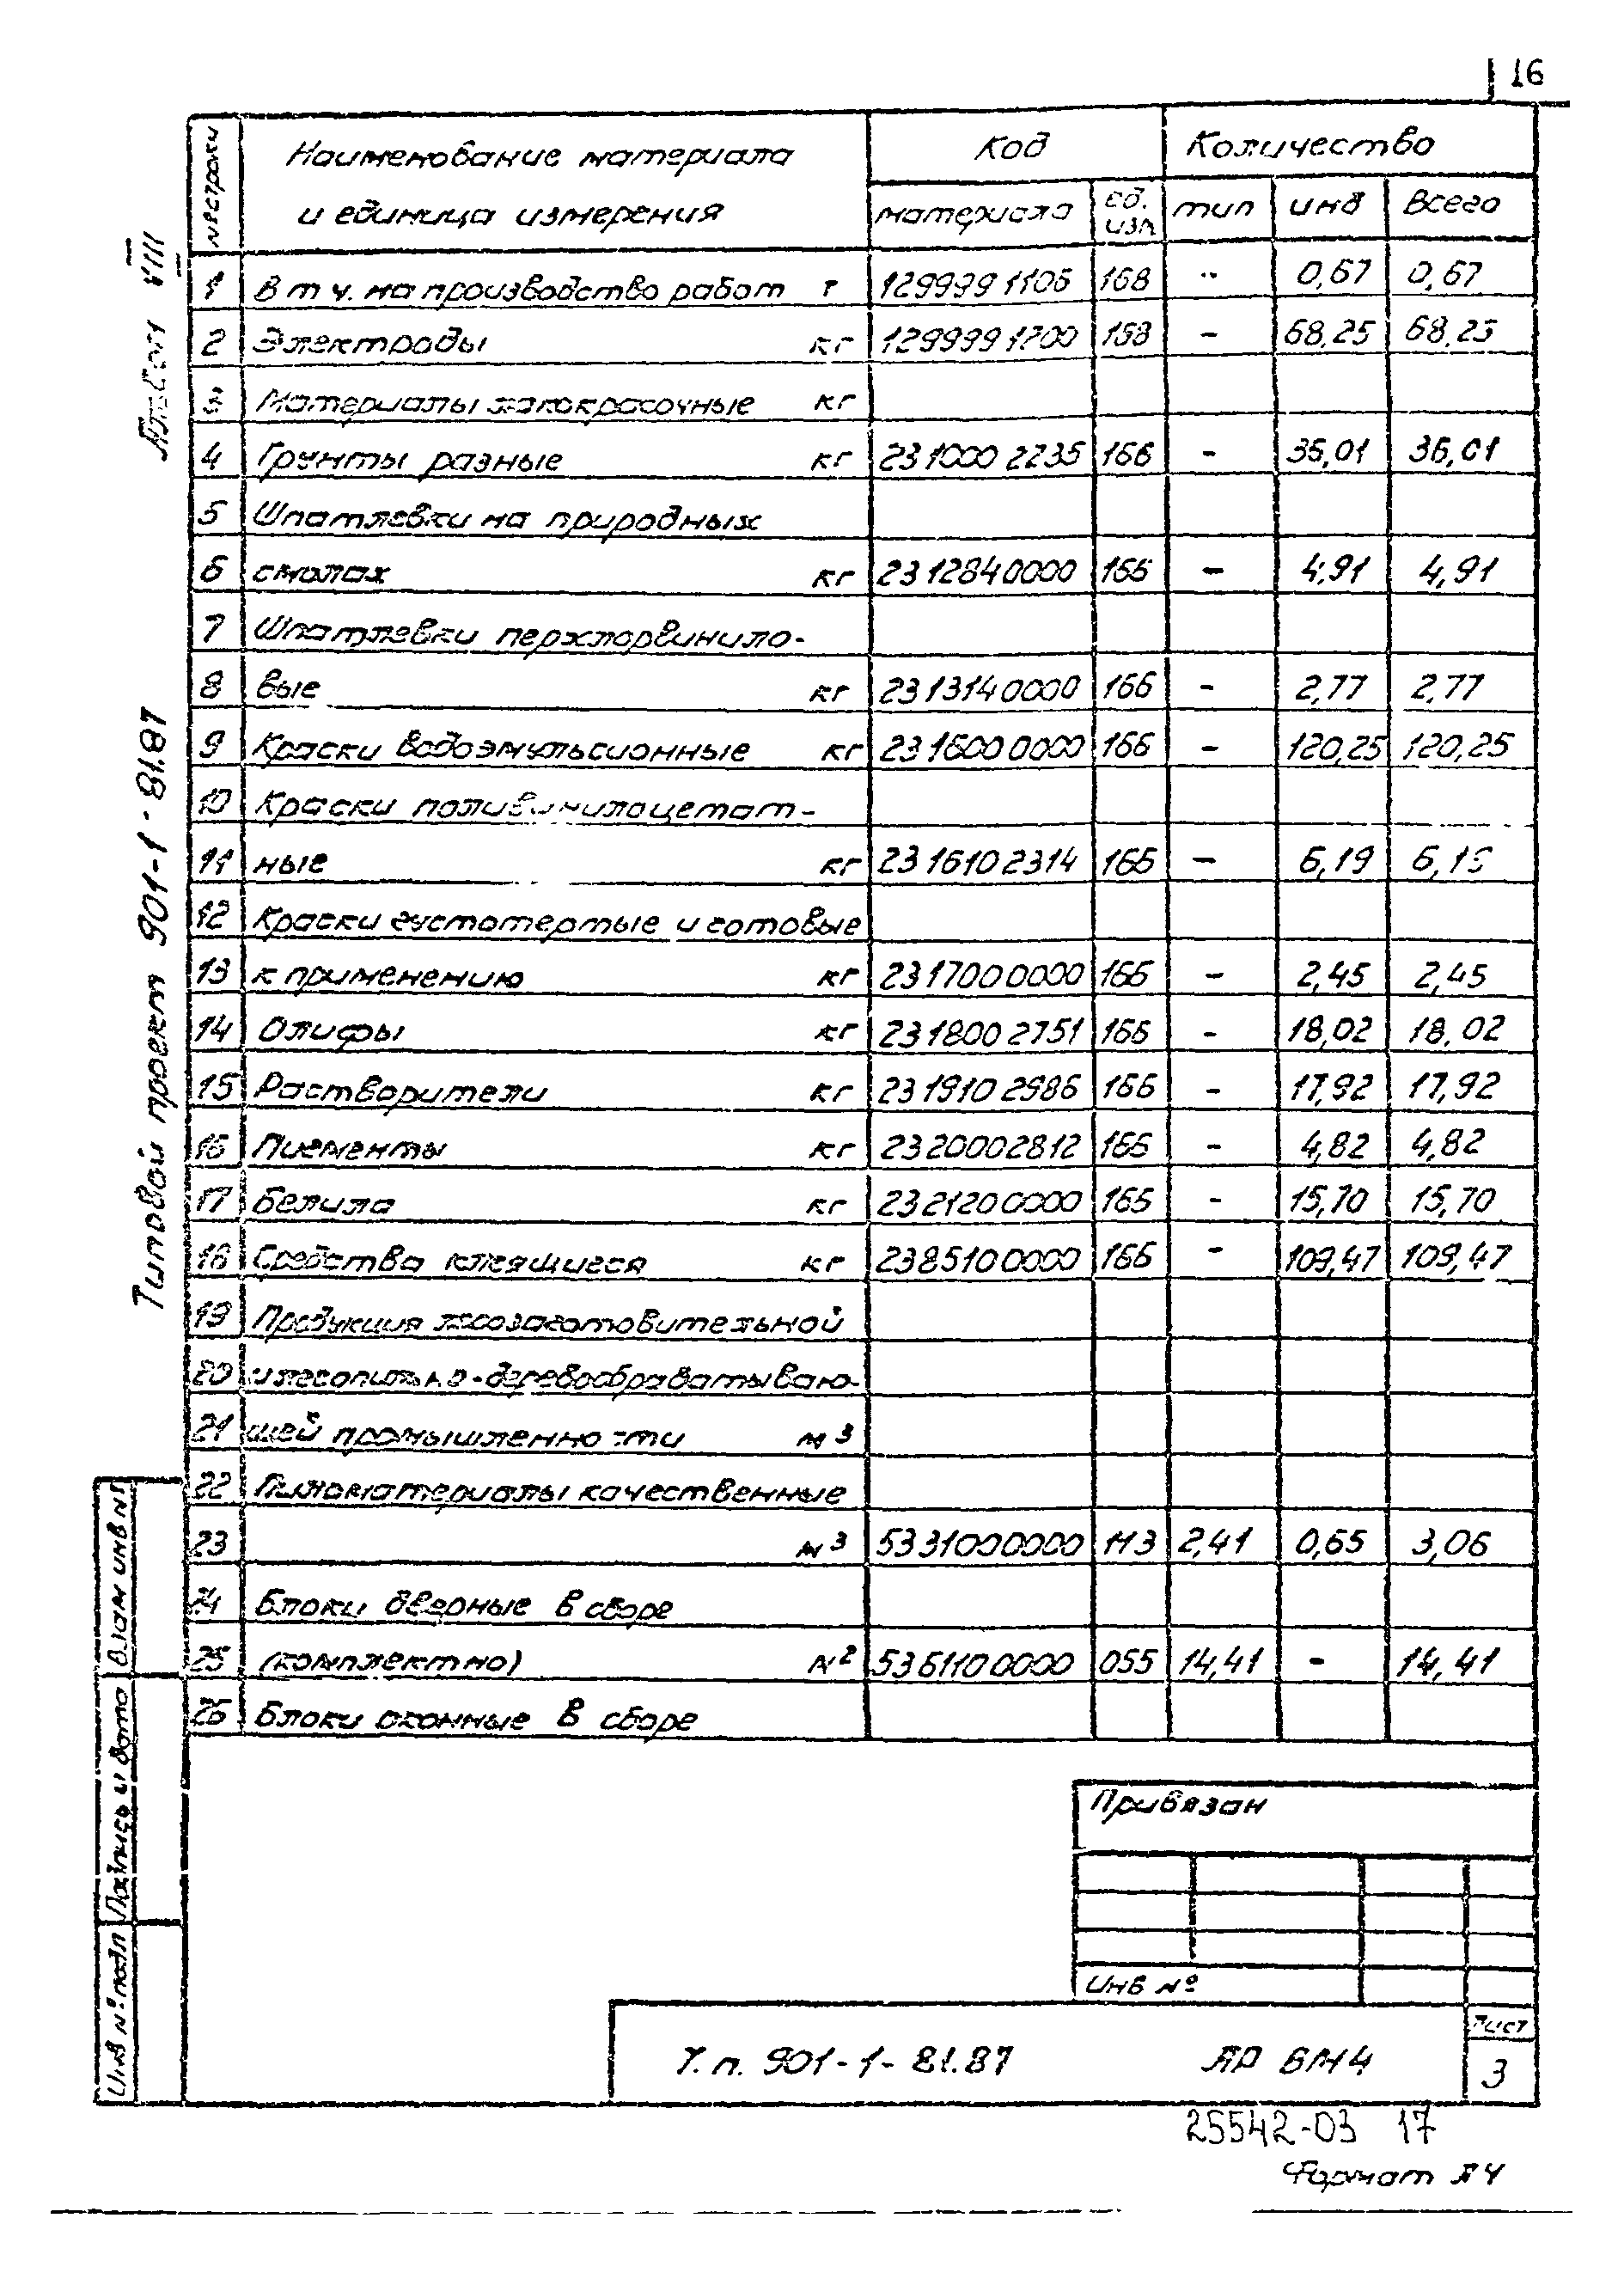 16
№ строки
Наименование материала
и единица измерения
Код
Количество
материала
ед. изм
тип
инд
Всего
1 В т ч. на производство работ т 129999 1105 168 - 0,67 0,67
2 Электроды кг 129999 1200 - 68,25 68,25
3 Материалы лакокрасочные кг
4 Грунты разные кг 231000 2235 166 -
5 Шпатлевки на природных
6 смолах кг 231284 0000 166 - 4,91 4,91
7 Шпатлевки перхлорвинило-
8 вые кг 231314 0000 166 - 2,77 2,77
9 Краски водоэмульсионные кг 231600 0000 166 - 120,25 120,25
10 Краски поливинилацетат-
11 ные кг 231610 2314 166 - 6,19
12 Краски густотертые и готовые
13 к применению кг 231700 0000 166 - 2,45 2,45
14 Олифы кг 231800 2751 166 - 18,02 18,02
15 Растворители кг 231910 2986 166 - 17,92 17,92
16 Пигменты кг 2320002812 166 - 4,82 4,82
17 Белила кг 232120 0000 166 - 15,70 15,70
18 Средства клеящиеся кг 238510 0000 166 - 109,47 109,47
19 Продукция лесозаготовительной
20 и лесопильно-деревообрабатываю-
21 щей промышленности м3
22 Пиломатериалы качественные
23 м3 533100 0000 113 2,41 0,65 3,06
24 Блоки дверные в сборе
25 (комплектно) м2 536110 0000 055 14,41 - 14,41
26 Блоки оконные в сборе
Альбом VIII
Типовой проект 901-1-81.87
Взам инв №
Подпись и дата
Инв № подл
Привязан
Инв №
Т.п. 901-1-81.87 АР ВМ4
Лист
3
25542-03 17
Формат А4